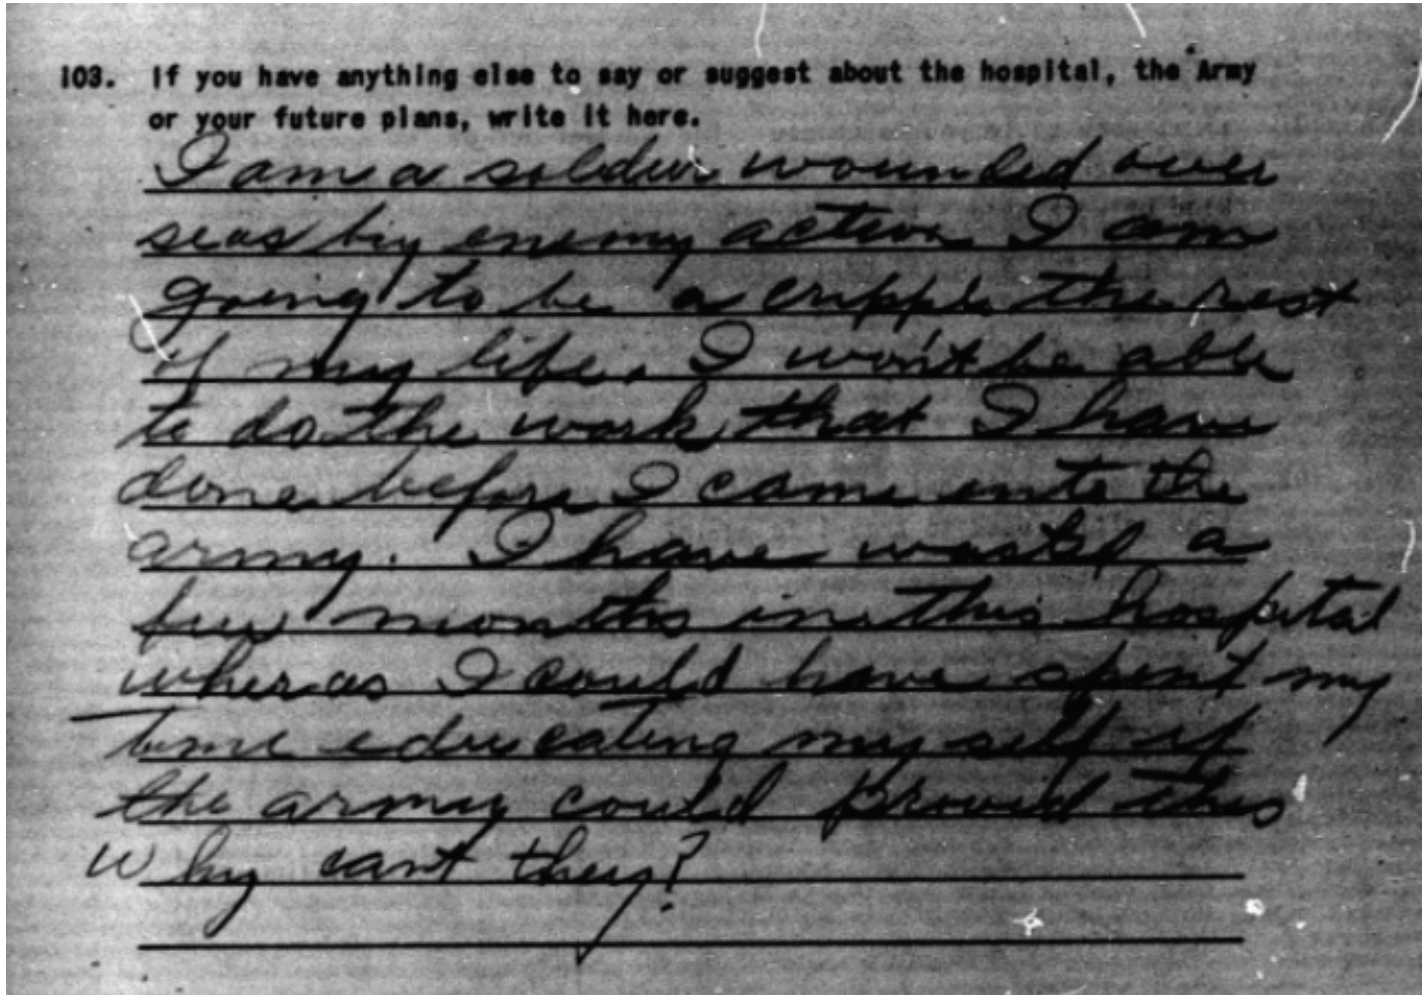 103. If you have anything else to say or suggest about the hospital, the Army
or your future plans, write it here.
I am a soldier wounded over
seas by enemy action I am
going to be a cripple the rest
of my life. I won't be able
to do the work that I have
done before I came into the
army. I have wasted a
few months in this hospital
wheras I could have spent my
time educating my self if
the army could provid this
why cant they?